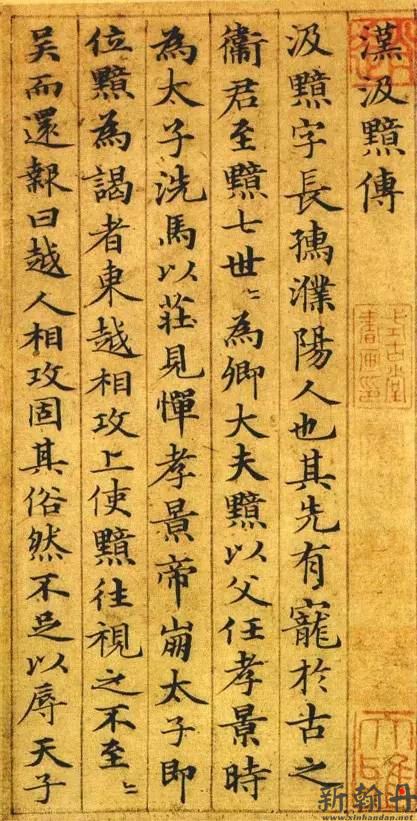 漢汲黯傳
汲黯字長孺濮陽人也其先有寵於古之
衛君至黯七世〻為卿大夫黯以父任孝景時
為太子洗馬以莊見憚孝景帝崩太子即
位黯為謁者東越相攻上使黯往視之不至〻
吴而還報曰越人相攻固其俗然不足以辱天子
式古堂
書畫印
新翰丹
www.xinhandan.net